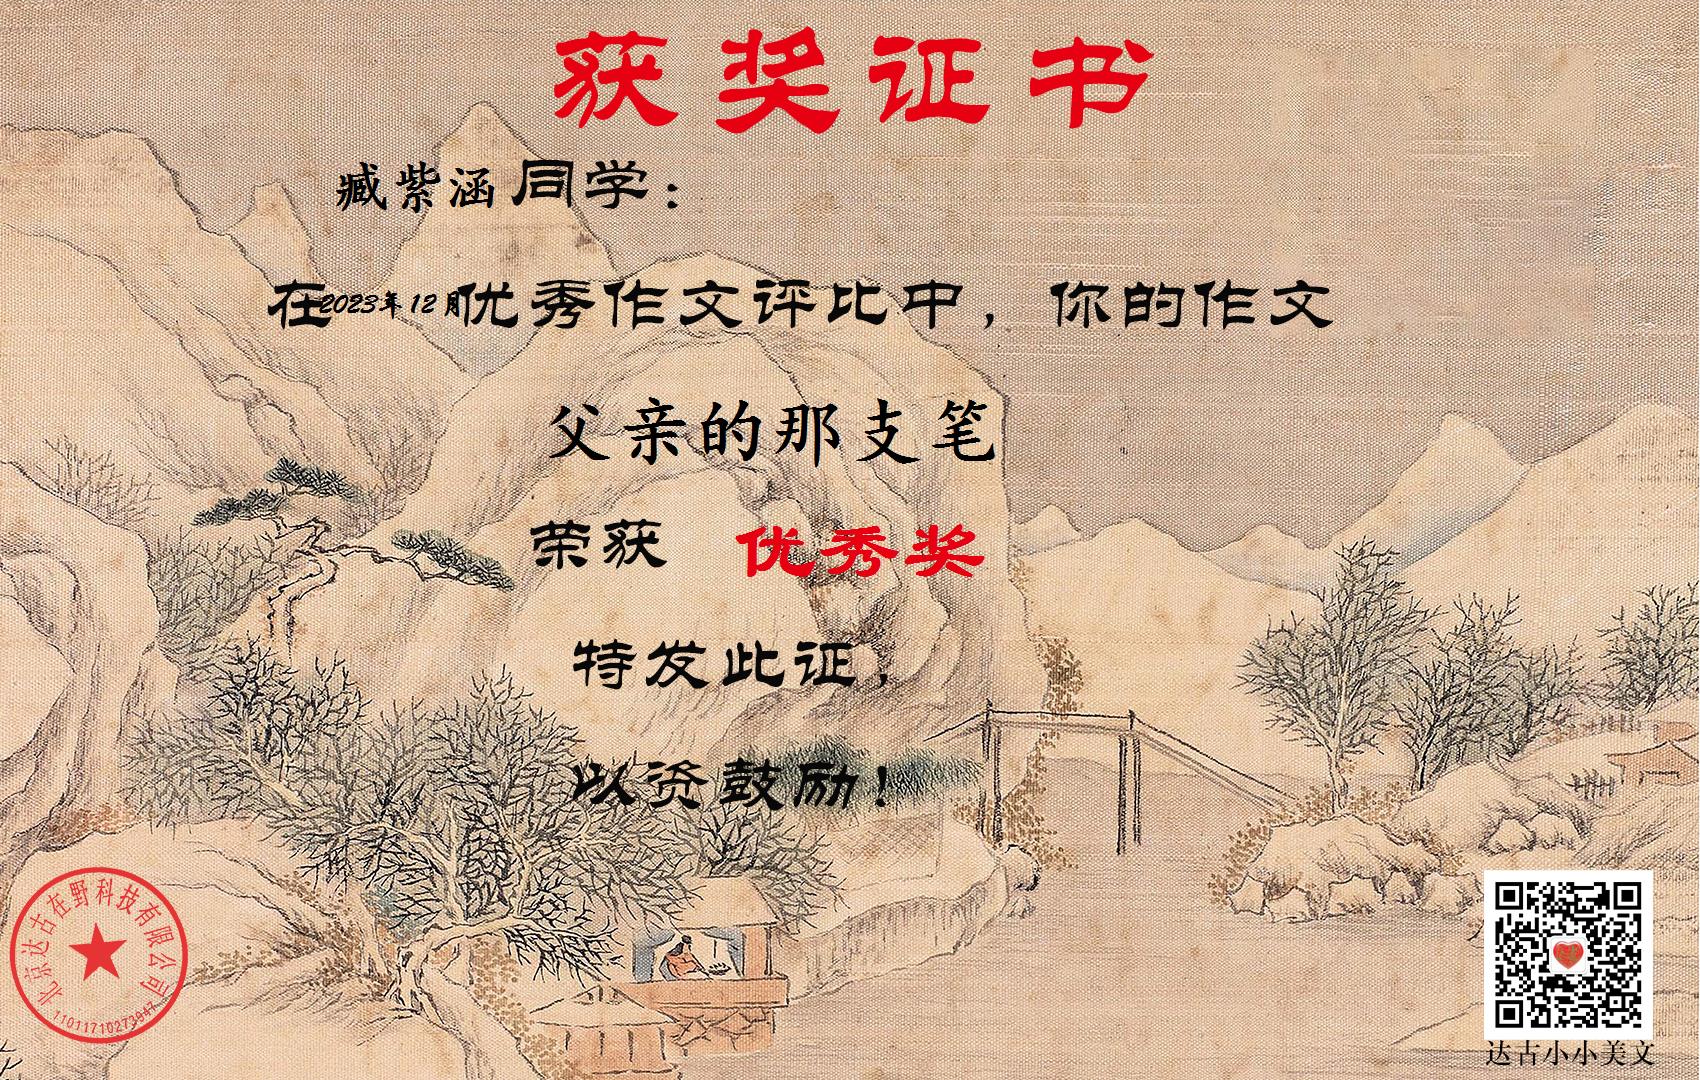 获奖证书
臧紫涵同学：
在2023年12月优秀作文评比中，你的作文
父亲的那支笔
荣获 优秀奖
特发此证，
以资鼓励！
北京达古在野科技有限公司
11011710273947
达古小小美文